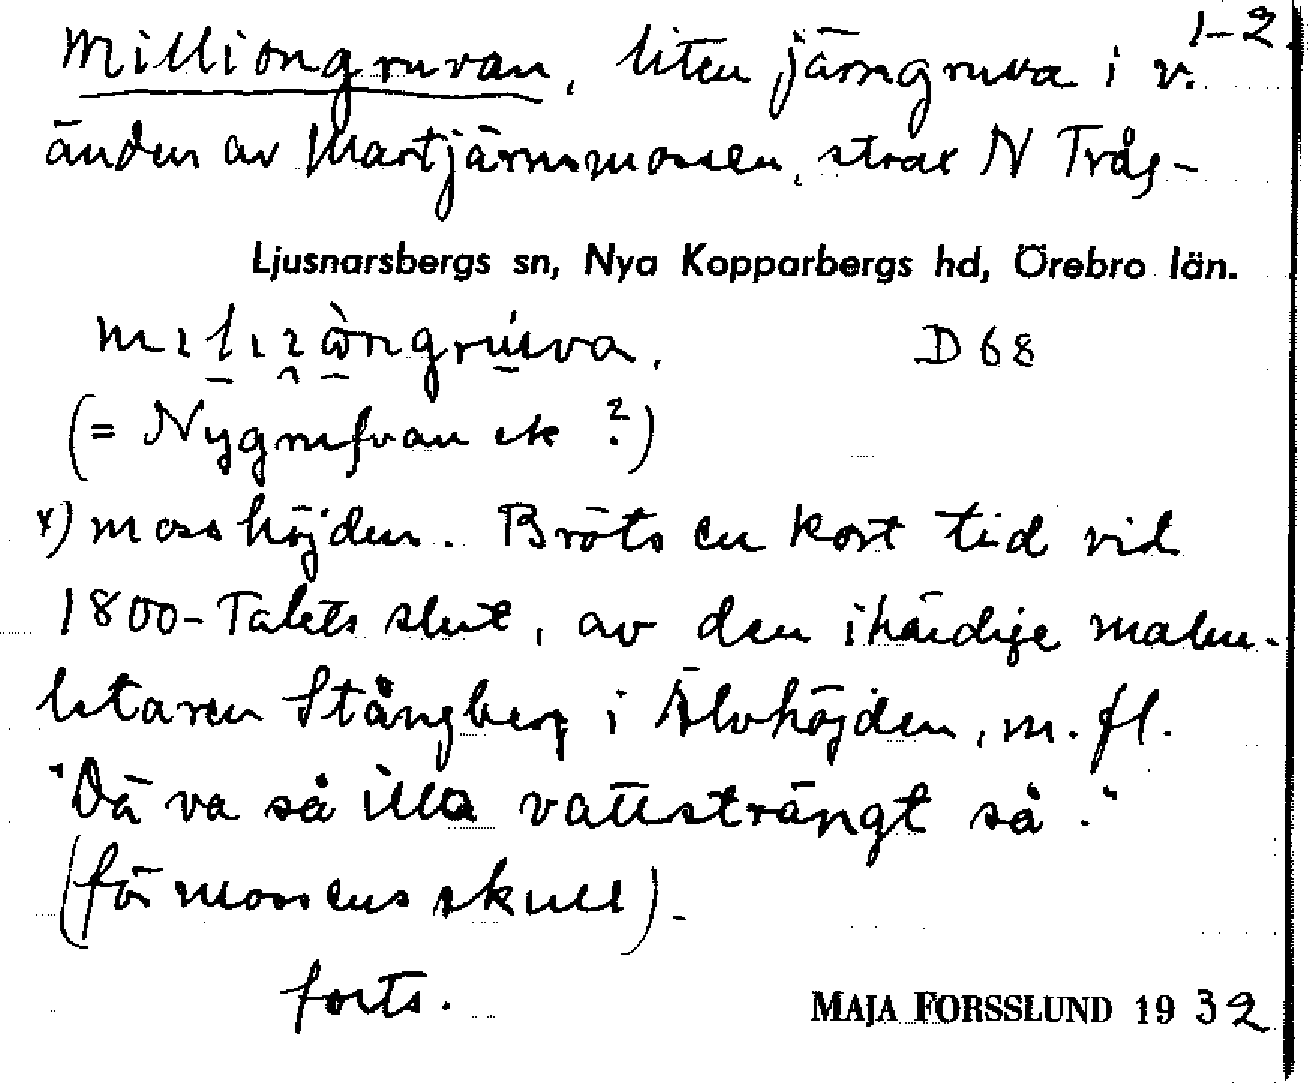 1-2.
Milliongruvan, liten järngruva i v.
änden av Martjärnsmossen, strax N Tråg-
Ljusnarsbergs sn, Nya Kopparbergs hd, Örebro län.
D 68
(= Nygrufvan ek ?)
x) mosshöjden. Bröts en kort tid vid
1800-Talets slut, av den ihärdige malm-
letaren Stångberg i Älvhöjden, m. fl.
"Dä va så illa vattsträngt så."
(för mossens skull).
forts.
MAJA FORSSLUND 1932